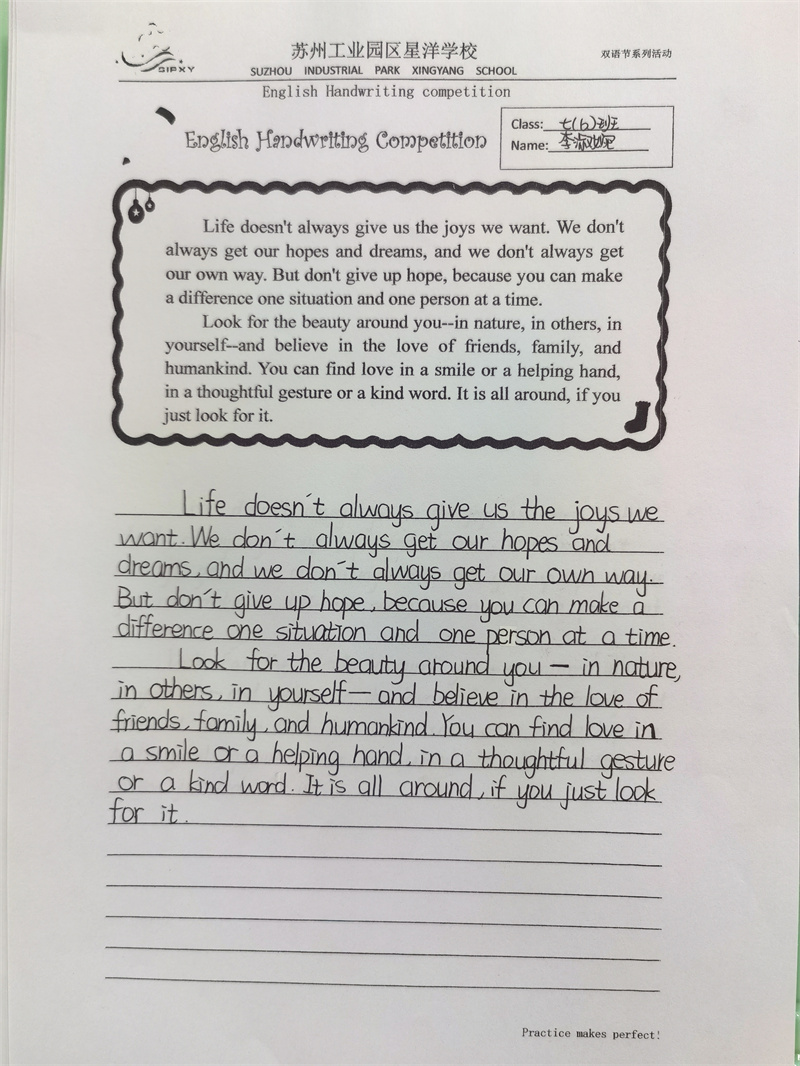 苏州工业园区星洋学校
双语节系列活动
SIPXY
SUZHOU INDUSTRIAL PARK XINGYANG SCHOOL
English Handwriting competition
English Handwriting Competition
Class: 七(6)班
Name: 李淑婉
Life doesn't always give us the joys we want. We don't
always get our hopes and dreams, and we don't always get
our own way. But don't give up hope, because you can make
a difference one situation and one person at a time.
Look for the beauty around you--in nature, in others, in
yourself--and believe in the love of friends, family, and
humankind. You can find love in a smile or a helping hand,
in a thoughtful gesture or a kind word. It is all around, if you
just look for it.
Life doesn't always give us the joys we
want. We don't always get our hopes and
dreams, and we don't always get our own way.
But don't give up hope, because you can make a
difference one situation and one person at a time.
Look for the beauty around you — in nature,
in others, in yourself — and believe in the love of
friends, family, and humankind. You can find love in
a smile or a helping hand, in a thoughtful gesture
or a kind word. It is all around, if you just look
for it.
Practice makes perfect!